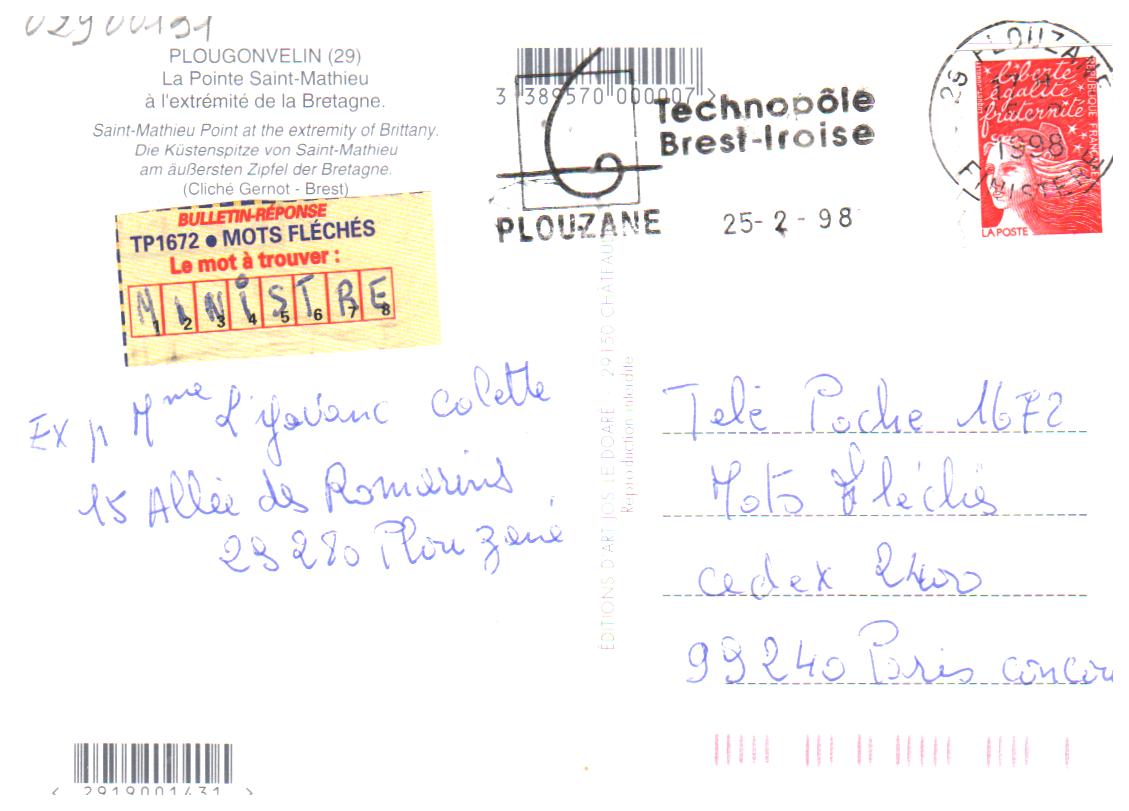 02900191
PLOUGONVELIN (29)
La Pointe Saint-Mathieu
à l'extrémité de la Bretagne.
Saint-Mathieu Point at the extremity of Brittany.
Die Küstenspitze von Saint-Mathieu
am äußersten Zipfel der Bretagne.
(Cliché Gernot - Brest)
BULLETIN-RÉPONSE
TP1672 ● MOTS FLÉCHÉS
Le mot à trouver :
MINISTRE
1 2 3 4 5 6 7 8
Ex p Mme Colette
15 Allée des Romarins
29280 Plouzané
3 389570 000007 >
Technopôle
Brest-Iroise
PLOUZANE 25-2-98
29 PLOUZANE
17 H
1998
FINISTERE
liberté
égalité
fraternité
RÉPUBLIQUE FRANÇAISE
LA POSTE
ÉDITIONS D'ART JOS LE DOARÉ - 29150 CHATEAU
Reproduction interdite
Telé Poche 1672
Mots Fléchés
cedex 2400
99240 Paris concor
< 2919001431 >